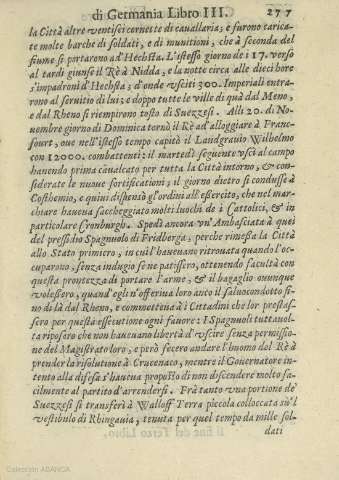 di Germania Libro III. 277
la Città altre ventisei cornette di cauallaria; e furono carica-
te molte barche di soldati, e di munitioni, che à seconda del
fiume si portarono ad Hechsta. L'istesso giorno de i 17. verso
al tardi giunse il Rè à Nidda, e la notte circa alle dieci hore
s'impadronì d'Hechsta; d'onde vsciti 300. Imperiali entra-
rono al seruitio di lui; e doppo tutte le ville di quà dal Meno,
e dal Rheno si riempirono tosto di Suezzesi. Alli 20. di No-
uembre giorno di Dominica tornò il Rè ad'alloggiare à Franc-
fourt, oue nell'istesso tempo capitò il Langrauio Wilhelmo
con 12000. combattenti; il martedì seguente vscì al campo
hauendo prima caualcato per tutta la Città intorno, & con-
siderate le nuoue fortificationi; il giorno dietro si condusse à
Costhemio, e quiui dispensò gl'ordini all'esercito, che nel mar-
chiare haueua saccheggiato molti luochi de i Cattolici, & in
particolare Cronburgh. Spedì ancora vn'Ambasciata à quei
del pressidio Spagnuolo di Fridberga, perche rimessa la Città
allo Stato primiero, in cui l'haueuano ritrouata quando l'oc-
cuparono, senza indugio se ne patissero, ottenendo facultà con
questa prontezza di portare l'arme, & il bagaglio ouunque
volessero, quand'egli n'offeriua loro anco il saluocondotto sì-
no di là dal Rheno, e commetteua à i Cittadini che lor prestas-
sero per questa essecutione ogni fauore: i Spagnuoli tutta uol-
ta riposero che non haueuano libertà d'vscire senza permissio-
ne del Magistrato loro, e però fecero andare l'huomo del Rè à
prender la risolutione à Crucenaco, mentre il Gouernatore in-
tento alla difesa s'haueua proposto di non discendere molto fa-
cilmente al partito d'arrendersi. Frà tanto vna portione de'
Suezzesi si transferì à Walloff Terra piccola colloccata sù'l
vestibulo di Rhingauia, tenuta per quel tempo da mille sol-
dati
Colección ABANCA